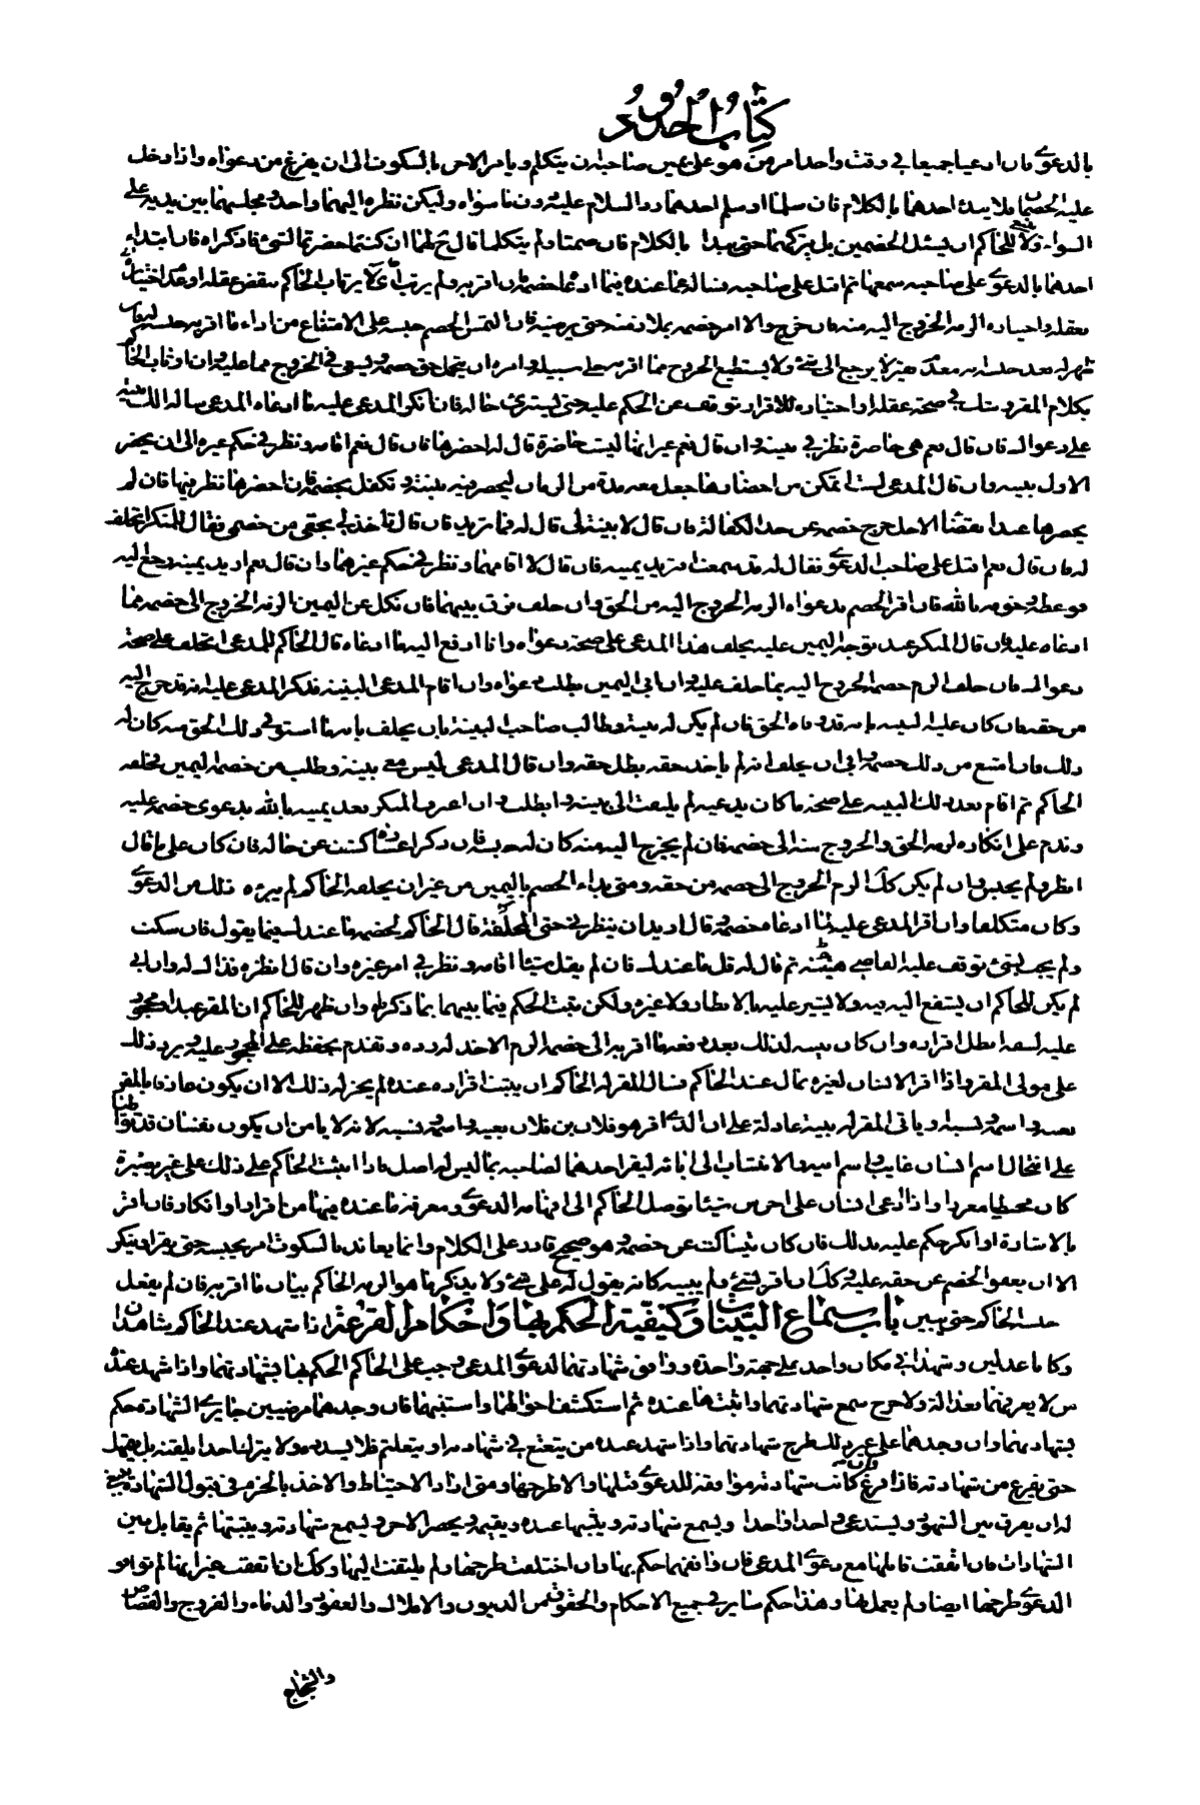 كتاب الحدود
بالدعوى فان ادعيا جميعا في وقت واحد امر من هو على يمين صاحبه ان يتكلم ويامر الاخر بالسكوت الى ان يفرغ من دعواه واذا دخل
عليه الخصمان فلا يبدء احدهما بالكلام فان سلما او سلم احدهما رد السلام عليه دون ما سواه وليكن نظره اليهما واحد ومجلسهما بين يديه على
السواء ولا ينبغي للحاكم ان يسئل الخصمين بل يتركهما حتى يبدا بالكلام فان صمتا ولم يتكلما قال لهما ان كنتما حضرتما لشئ فاذكراه فان ابتدا
احدهما بالدعوى على صاحبه سمعها ثم اقبل على صاحبه فساله عما عنده فيما ادعاه خصمه فان اقر به ولم يرتب بعقله واختياره
الزمه الخروج اليه منه فان خرج والا امر خصمه بملازمته حتى يرضيه فان التمس الخصم حبسه على الامتناع من اداء ما اقر به حبسه
ظهر له بعد حبسه انه معدم فقير لا يرجع الى شئ ولا يستطيع الخروج مما اقر به خلى سبيله وامره ان يتمحل حق خصمه ويسعى في الخروج مما عليه وان ارتاب الحاكم
بكلام المقر وشك في صحة عقله او اختياره للاقرار توقف عن الحكم عليه حتى يستبرئ حاله فان انكر المدعى عليه ما ادعاه المدعي ساله الك بينة
على دعواك فان قال نعم هي حاضرة نظر في بينته وان قال نعم غير انها ليست حاضرة قال له احضرها فان قال نعم اقامه ونظر في حكم غيره الى ان يحضر
الاول بينته وان قال المدعي لست اتمكن من احضارها جعل معه مدة من الزمان ليحضر فيه بينته وتكفل بخصمه فان احضرها نظر فيها فان لم
يحضرها عند انقضاء الاجل خرج خصمه عن حد الكفالة فان قال لا بينة لي قال له فما تريد فان قال تاخذ لي بحقي من خصمي فقال للمنكر اتحلف
له فان قال نعم اقبل على صاحب الدعوى فقال له قد سمعت افتريد يمينه فان قال لا اقامهما ونظر في حكم غيرهما وان قال نعم اريد يمينه رجع اليه
فوعظه وخوفه بالله فان اقر الخصم بدعواه الزمه الخروج اليه من الحق وان حلف فرق بينهما فان نكل عن اليمين الزمه الخروج الى خصمه مما
ادعاه عليه وان قال المنكر عند توجه اليمين عليه يحلف هذا المدعي على صحة دعواه وانا ادفع اليه ما ادعاه قال الحاكم للمدعي اتحلف على صحة
دعواك فان حلف الزم خصمه الخروج اليه بما حلف عليه وان ابى اليمين بطلت دعواه وان اقام المدعي البينة فذكر المدعى عليه انه قد خرج اليه
من حقه فان كان عليه البينة بانه قد وفاه الحق فان لم يكن له بينة وطالب صاحب البينة بان يحلف بانه ما استوفى ذلك الحق منه كان له
ذلك فان امتنع من ذلك خصمه وابى ان يحلف انه لم ياخذ حقه بطل حقه وان قال المدعي ليس معي بينة وطلب من خصمه اليمين فحلفه
الحاكم ثم اقام بعد ذلك البينة على صحة ما كان يدعيه لم يلتفت الى بينته وابطلت وان اعترف المنكر بعد يمينه بالله بدعوى خصمه عليه
وندم على انكاره لزمه الحق والخروج منه الى خصمه فان لم يخرج اليه منه كان له حبسه فان ذكر اعسارا كشف عن حاله فان كان على ما قال
انظر ولم يحبس وان لم يكن كذلك الزم الخروج الى خصمه من حقه ومتى بداء الخصم باليمين من غير ان يحلفه الحاكم لم يبره ذلك من الدعوى
وكان متكلفا وان اقر المدعى عليه بما ادعاه خصمه وقال اريد ان ينظرني حتى قال الحاكم لخصمه ما عندك فيما يقول فان سكت
ولم يجب بشئ توقف عليه القاضي هنيئة ثم قال له قل ما عندك فان لم يقل شيئا اقامه ونظر في امر غيره وان قال انظره فذاك له وان ابى
لم يكن للحاكم ان يشفع اليه فيه ولا يشير عليه بالانظار ولا غيره ولكن يثبت الحكم فيما بينهما بما ذكرناه وان ظهر للحاكم ان المقر عبد او محجور
عليه لسفه ابطل اقراره وان كان بينه لذلك بعد دفعه ما اقر به الى خصمه الزم الاخذ له رده وتقدم بحفظه على المحجور عليه ويرد ذلك
على مولى المقر واذا اقر الانسان لغيره بمال عند الحاكم فسال المقر له الحاكم ان يثبت اقراره عنده لم يجز له ذلك الا ان يكون عارفا بالمقر
بعينه واسمه ونسبه او ياتي المقر له ببينة عادلة على ان الذي اقر هو فلان بن فلان بعينه واسمه ونسبه لانه لا يامن ان يكون نفسان قد تواطئا
على انتحال اسم انسان غايب واسم ابيه والانتساب الى ابائه ليقر احدهما لصاحبه بما ليس له اصل فاذا اثبت الحاكم على ذلك على غير بصيرة
كان مخطيا مغررا واذا ادعى انسان على اخرس شيئا توصل الحاكم الى افهامه الدعوى ومعرفة ما عنده فيها من اقرار او انكار فان اقر
بالاشارة او انكر حكم عليه بذلك فان كان ساكت عن خصمه وهو صحيح قادر على الكلام وانما يعانده بالسكوت امر بحبسه حتى يقر او ينكر
الا ان يعفو الخصم عن حقه عليه وكذلك ان اقر بشئ ولم يبينه كانه يقول له علي شئ ولا يذكر ما هو الزمه الحاكم بيان ما اقر به فان لم يفعل
حبسه الحاكم حتى يبين باب سماع البينات وكيفية الحكم بها واحكام القرعة اذا شهد عند الحاكم شاهدان
وكانا عدلين وشهدا في مكان واحد على جهة واحدة ووافق شهادتهما لدعوى المدعي وجب على الحاكم الحكم بها بشهادتهما واذا شهد عنده
من لا يعرفهما بعدالة ولا جرح سمع شهادتهما واثبتها عنده ثم استكشف احوالهما واستنبهما فان وجدهما مرضيين جايزي الشهادة حكم
بشهادتهما وان وجدهما على غير ذلك طرح شهادتهما واذا شهد عنده من يتعتع في شهادته او يتلعثم فلا يسدده ولا يترك احدا يلقنه بل يتمهل
حتى يفرغ من شهادته فاذا فرغ فان كانت شهادته موافقة للدعوى قبلها والا طرحها ومتى اراد الاحتياط والاخذ بالحزم في قبول الشهادة ينبغي
له ان يفرق بين الشهود ويستدعي واحدا واحدا ويسمع شهادته ويثبتها عنده ويقيمه ويحضر الاخر ويسمع شهادته ويثبتها ثم يقابل بين
الشهادات فان اتفقت قابلها مع دعوى المدعي فان وافقها حكم بها وان اختلفت طرحها ولم يلتفت اليها وكذلك ان اتفقت غير انها لم توافق
الدعوى طرحها ايضا ولم يعمل بها وهذا حكم ساير في جميع الاحكام والحقوق من الديون والاملاك والعقود والدماء والفروج والقصاص
والشجاج